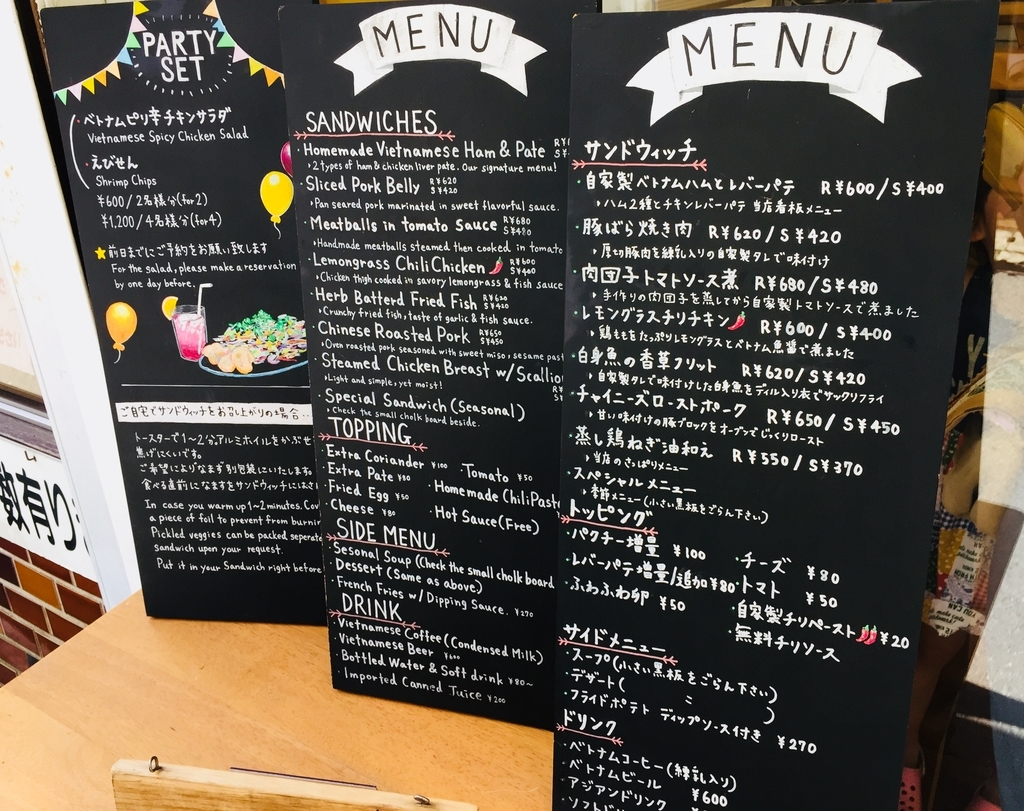 PARTY
SET
・ベトナムピリ辛チキンサラダ
Vietnamese Spicy Chicken Salad
・えびせん
Shrimp Chips
¥600/2名様分(for2)
¥1,200/4名様分(for4)
前日までにご予約をお願い致します
For the salad, please make a reservation
by one day before.
ご自宅でサンドウィッチをお召し上がりの場合...
トースターで1〜2分。アルミホイルをかぶせ
焦げにくいです。
ご希望によりなます別包装にいたします。
食べる直前になますをサンドウィッチにはさ
In case you warm up 1~2minutes. Cov
a piece of foil to prevent from burnin
Pickled veggies can be packed seperate
sandwich upon your request.
Put it in your Sandwich right before
数有り
MENU
SANDWICHES
・Homemade Vietnamese Ham & Pate
2 types of ham & chicken liver pate. Our signature menu!
・Sliced Pork Belly R¥620 S¥420
Pan seared pork marinated in sweet flavorful sauce.
・Meatballs in tomato Sauce R¥680 S¥480
Handmade meatballs steamed then cooked in tomato
・Lemongrass Chili Chicken R¥600 S¥400
Chicken thigh cooked in savory lemongrass & fish sauce
・Herb Batterd Fried Fish R¥620 S¥420
Crunchy fried fish, taste of garlic & fish sauce.
・Chinese Roasted Pork R¥650 S¥450
Oven roasted pork seasoned with sweet miso, sesame past
・Steamed Chicken Breast w/Scallio
Light and simple, yet moist!
・Special Sandwich (Seasonal)
Check the small chalk board beside.
TOPPING
・Extra Coriander ¥100 ・Tomato ¥50
・Extra Pate ¥80 ・Homemade Chili Paste
・Fried Egg ¥50 ・Hot Sauce (Free)
・Cheese ¥80
SIDE MENU
・Sesonal Soup (Check the small cholk board
・Dessert (Same as above)
・French Fries w/ Dipping Sauce. ¥270
DRINK
・Vietnamese Coffee (Condensed Milk)
・Vietnamese Beer ¥600
・Bottled Water & Soft drink ¥80~
・Imported Canned Juice ¥200
MENU
サンドウィッチ
・自家製ベトナムハムとレバーパテ R¥600/S¥400
ハム2種とチキンレバーパテ 当店看板メニュー
・豚ばら焼き肉 R¥620/S¥420
厚切豚肉を練乳入りの自家製タレで味付け
・肉団子トマトソース煮 R¥680/S¥480
手作りの肉団子を蒸してから自家製トマトソースで煮ました
・レモングラスチリチキン R¥600/S¥400
鶏ももをたっぷりレモングラスとベトナム魚醤で煮ました
・白身魚の香草フリット R¥620/S¥420
自家製タレで味付けした白身魚をディル入り衣でサックリフライ
・チャイニーズローストポーク R¥650/S¥450
甘い味付けの豚ブロックをオーブンでじっくりロースト
・蒸し鶏ねぎ油和え R¥550/S¥370
当店のさっぱりメニュー
・スペシャルメニュー
季節メニュー(小さい黒板をごらん下さい)
トッピング
・パクチー増量 ¥100 ・チーズ ¥80
・レバーパテ増量/追加¥80 ・トマト ¥50
・ふわふわ卵 ¥50 ・自家製チリペースト ¥20
・無料チリソース
サイドメニュー
・スープ(小さい黒板をごらん下さい)
・デザート( 〃 )
・フライドポテト ディップソース付き ¥270
ドリンク
・ベトナムコーヒー(練乳入り)
・ベトナムビール ¥600
・アジアンドリンク